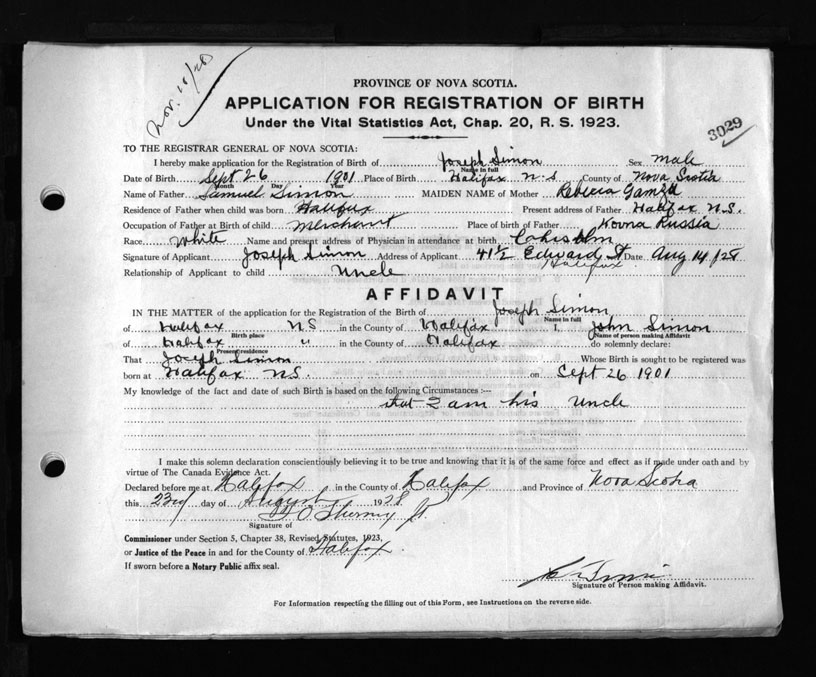 Nov. 10/28
PROVINCE OF NOVA SCOTIA.
APPLICATION FOR REGISTRATION OF BIRTH
Under the Vital Statistics Act, Chap. 20, R. S. 1923.
3029
TO THE REGISTRAR GENERAL OF NOVA SCOTIA:
I hereby make application for the Registration of Birth of Joseph Simon Sex male
Name in full
Date of Birth Sept 26 1901 Place of Birth Halifax N.S County of Nova Scotia
Month Day Year
Name of Father Samuel Simon MAIDEN NAME of Mother Rebecca
Residence of Father when child was born Halifax Present address of Father Halifax N.S.
Occupation of Father at Birth of child Merchant Place of birth of Father Kovna Russia
Race White Name and present address of Physician in attendance at birth Chisholm
Signature of Applicant Joseph Simon Address of Applicant 41½ Edward St Date Aug 14/28
Halifax
Relationship of Applicant to child Uncle
AFFIDAVIT
IN THE MATTER of the application for the Registration of the Birth of Joseph Simon
Name in full
of Halifax NS in the County of Halifax I, John Simon
Birth place Name of person making Affidavit
of Halifax " in the County of Halifax do solemnly declare:
Present residence
That Joseph Simon Whose Birth is sought to be registered was
born at Halifax N.S. on Sept 26 1901
My knowledge of the fact and date of such Birth is based on the following Circumstances :—
that I am his Uncle
I make this solemn declaration conscientiously believing it to be true and knowing that it is of the same force and effect as if made under oath and by
virtue of The Canada Evidence Act.
Declared before me at Halifax in the County of Halifax and Province of Nova Scotia
this 23rd day of August 1928
Signature of
Commissioner under Section 5, Chapter 38, Revised Statutes, 1923,
or Justice of the Peace in and for the County of Halifax.
If sworn before a Notary Public affix seal.
Signature of Person making Affidavit.
For Information respecting the filling out of this Form, see Instructions on the reverse side.